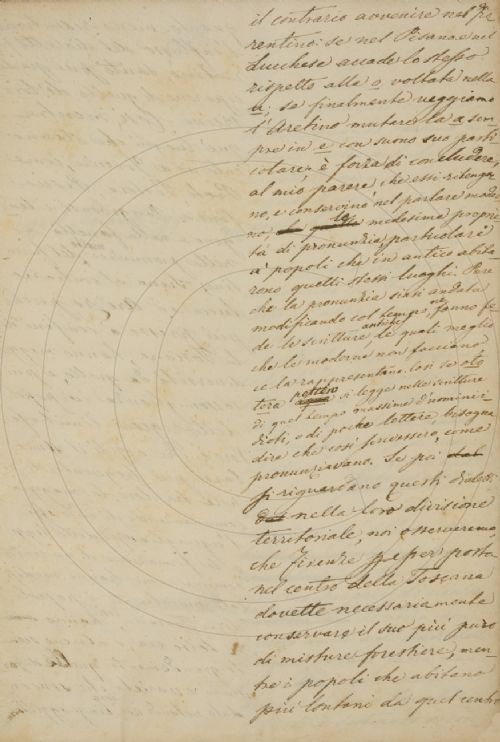 il contrario avvenire nel Fio
rentino: se nel Pisano e nel
Lucchese accade lo stesso
rispetto alla o voltata nella
u; se finalmente veggiamo
l'Aretino mutare la a sem
pre in e con suono suo parti
colare; è forza di concludere,
al mio parere, che essi ritenga
no, e conservino nel parlare moder
no le medesime proprie
tà di pronunzia particolare
a' popoli che in antico abita
rono quelli stessi luoghi. Pare
che la pronunzia siasi andata
modificando col tempo, ne fanno fe
de le scritture antiche le quali meglio
che le moderne non facciano
ce la rappresentano. Così se
si legge nelle scritture
di quel tempo massime d'uomini i
dioti, o di poche lettere, bisogna
dire che così scrivessero, come
pronunziavano. Se poi
si riguardano questi dialetti
nella loro divisione
territoriale, noi osserveremo,
che Firenze per posta
nel centro della Toscana
dovette necessariamente
conservare il suo più puro
di misture forestiere, men
tre i popoli che abitano
più lontani da quel centro